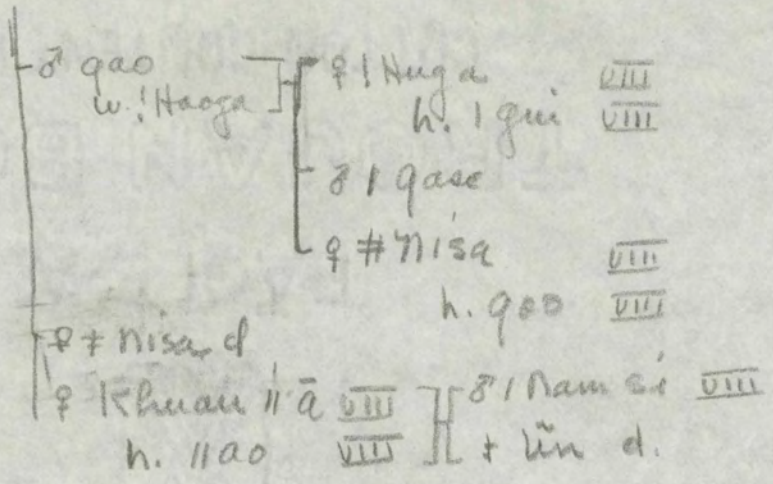 ♂ qao
w. !Haoga
♀ !Huga VIII
h. | gui VIII
♂ | qase
♀ # Nisa VIII
h. qao VIII
♀ ‡ Nisa, d
♀ Khuau || ā VIII
h. ||ao VIII
♂ / Nam si VIII
‡ d.